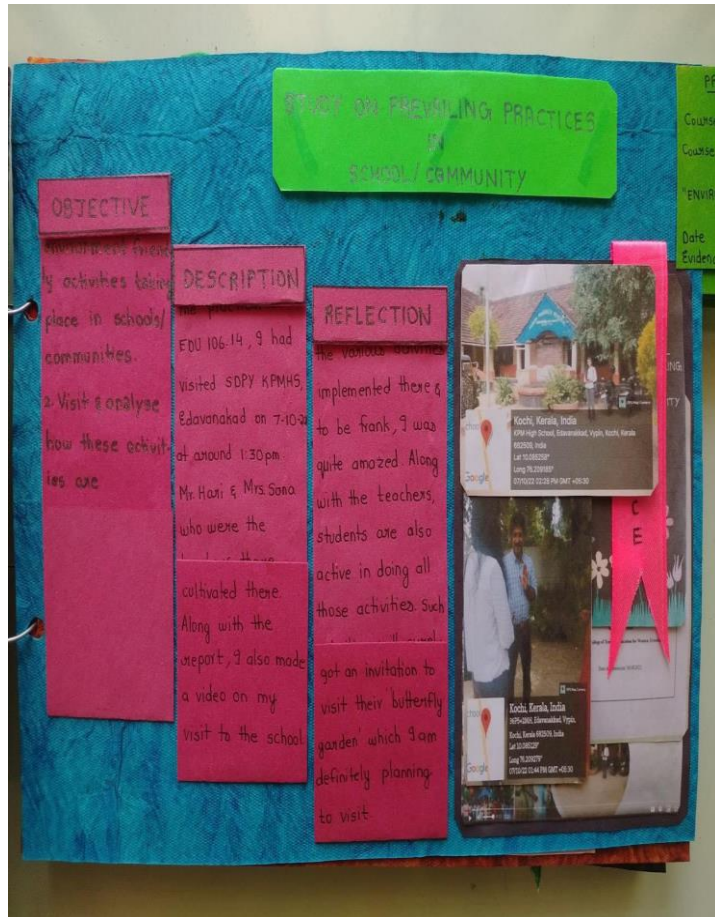 STUDY ON PREVAILING PRACTICES
IN
SCHOOL/COMMUNITY
OBJECTIVE
y activities taking
place in schools/
communities.
2. Visit & analyse
how these activit-
ies are
DESCRIPTION
EDU 106.14, I had
visited SDPY KPMHS,
Edavanakad on
at around 1:30pm.
Mr. Hari & Mrs. Sona
who were the
cultivated there.
Along with the
report, I also made
a video on my
visit to the school
REFLECTION
the various activities
implemented there &
to be frank, I was
quite amazed. Along
with the teachers,
students are also
active in doing all
those activities. Such
got an invitation to
visit their 'butterfly
garden' which I am
definitely planning
to visit.
Kochi, Kerala, India
KPM High School, Edavanakkad, Vypin, Kochi, Kerala
682509, India
Lat 10.085258°
Long 76.209165°
07/10/22 02:25 PM GMT +05:30
Google
CE
Kochi, Kerala, India
Edavanakkad, Vypin,
Kochi, Kerala 682509, India
Lat
Long 76.209279°
07/10/22 01:44 PM GMT +05:30
Google
Course
Course
"ENVIR
Date
Evidenc